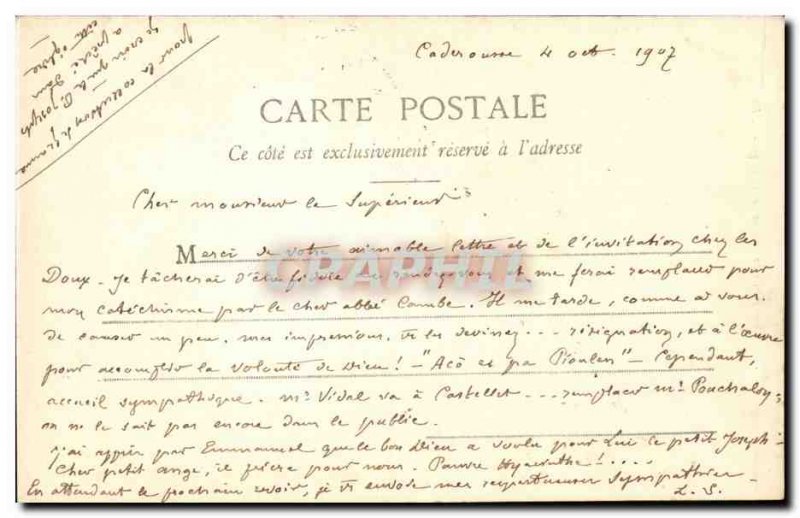 Caderousse 4 oct. 1907
pour la collection de
je crois que le P. Joseph
a prêché dans
cette église
CARTE POSTALE
Ce côté est exclusivement réservé à l'adresse
Cher monsieur le Supérieur
Merci de votre aimable lettre et de l'invitation chez les
Doux. Je tâcherai d'être fidèle au rendez-vous et me ferai remplacer pour
mon catéchisme par le cher abbé Combe. Il me tarde, comme à vous,
de causer un peu. mes impressions, vs les devinez... résignation, et à l'œuvre
pour accomplir la volonté de Dieu! - "Acò es pa Piolen" - Cependant,
accueil sympathique. Mr Vidal va à Castellet... remplacer Mr Pouchaloy;
on ne le sait pas encore dans le public.
j'ai appris par Emmanuel que le bon Dieu a voulu pour Lui le petit Joseph.
Cher petit ange, il priera pour nous. Pauvre Hyacinthe!....
En attendant le prochain revoir, je vs envoie mes respectueuses sympathies
L. S.
CPAPHIL